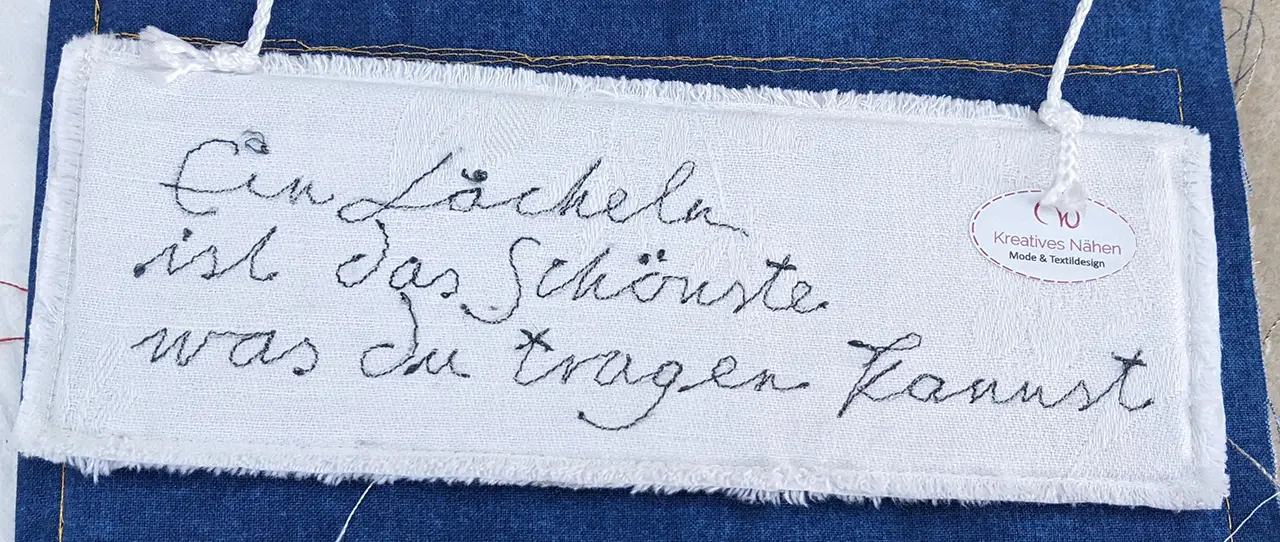 Ein Lächeln
ist das Schönste
was du tragen kannst
Kreatives Nähen
Mode & Textildesign